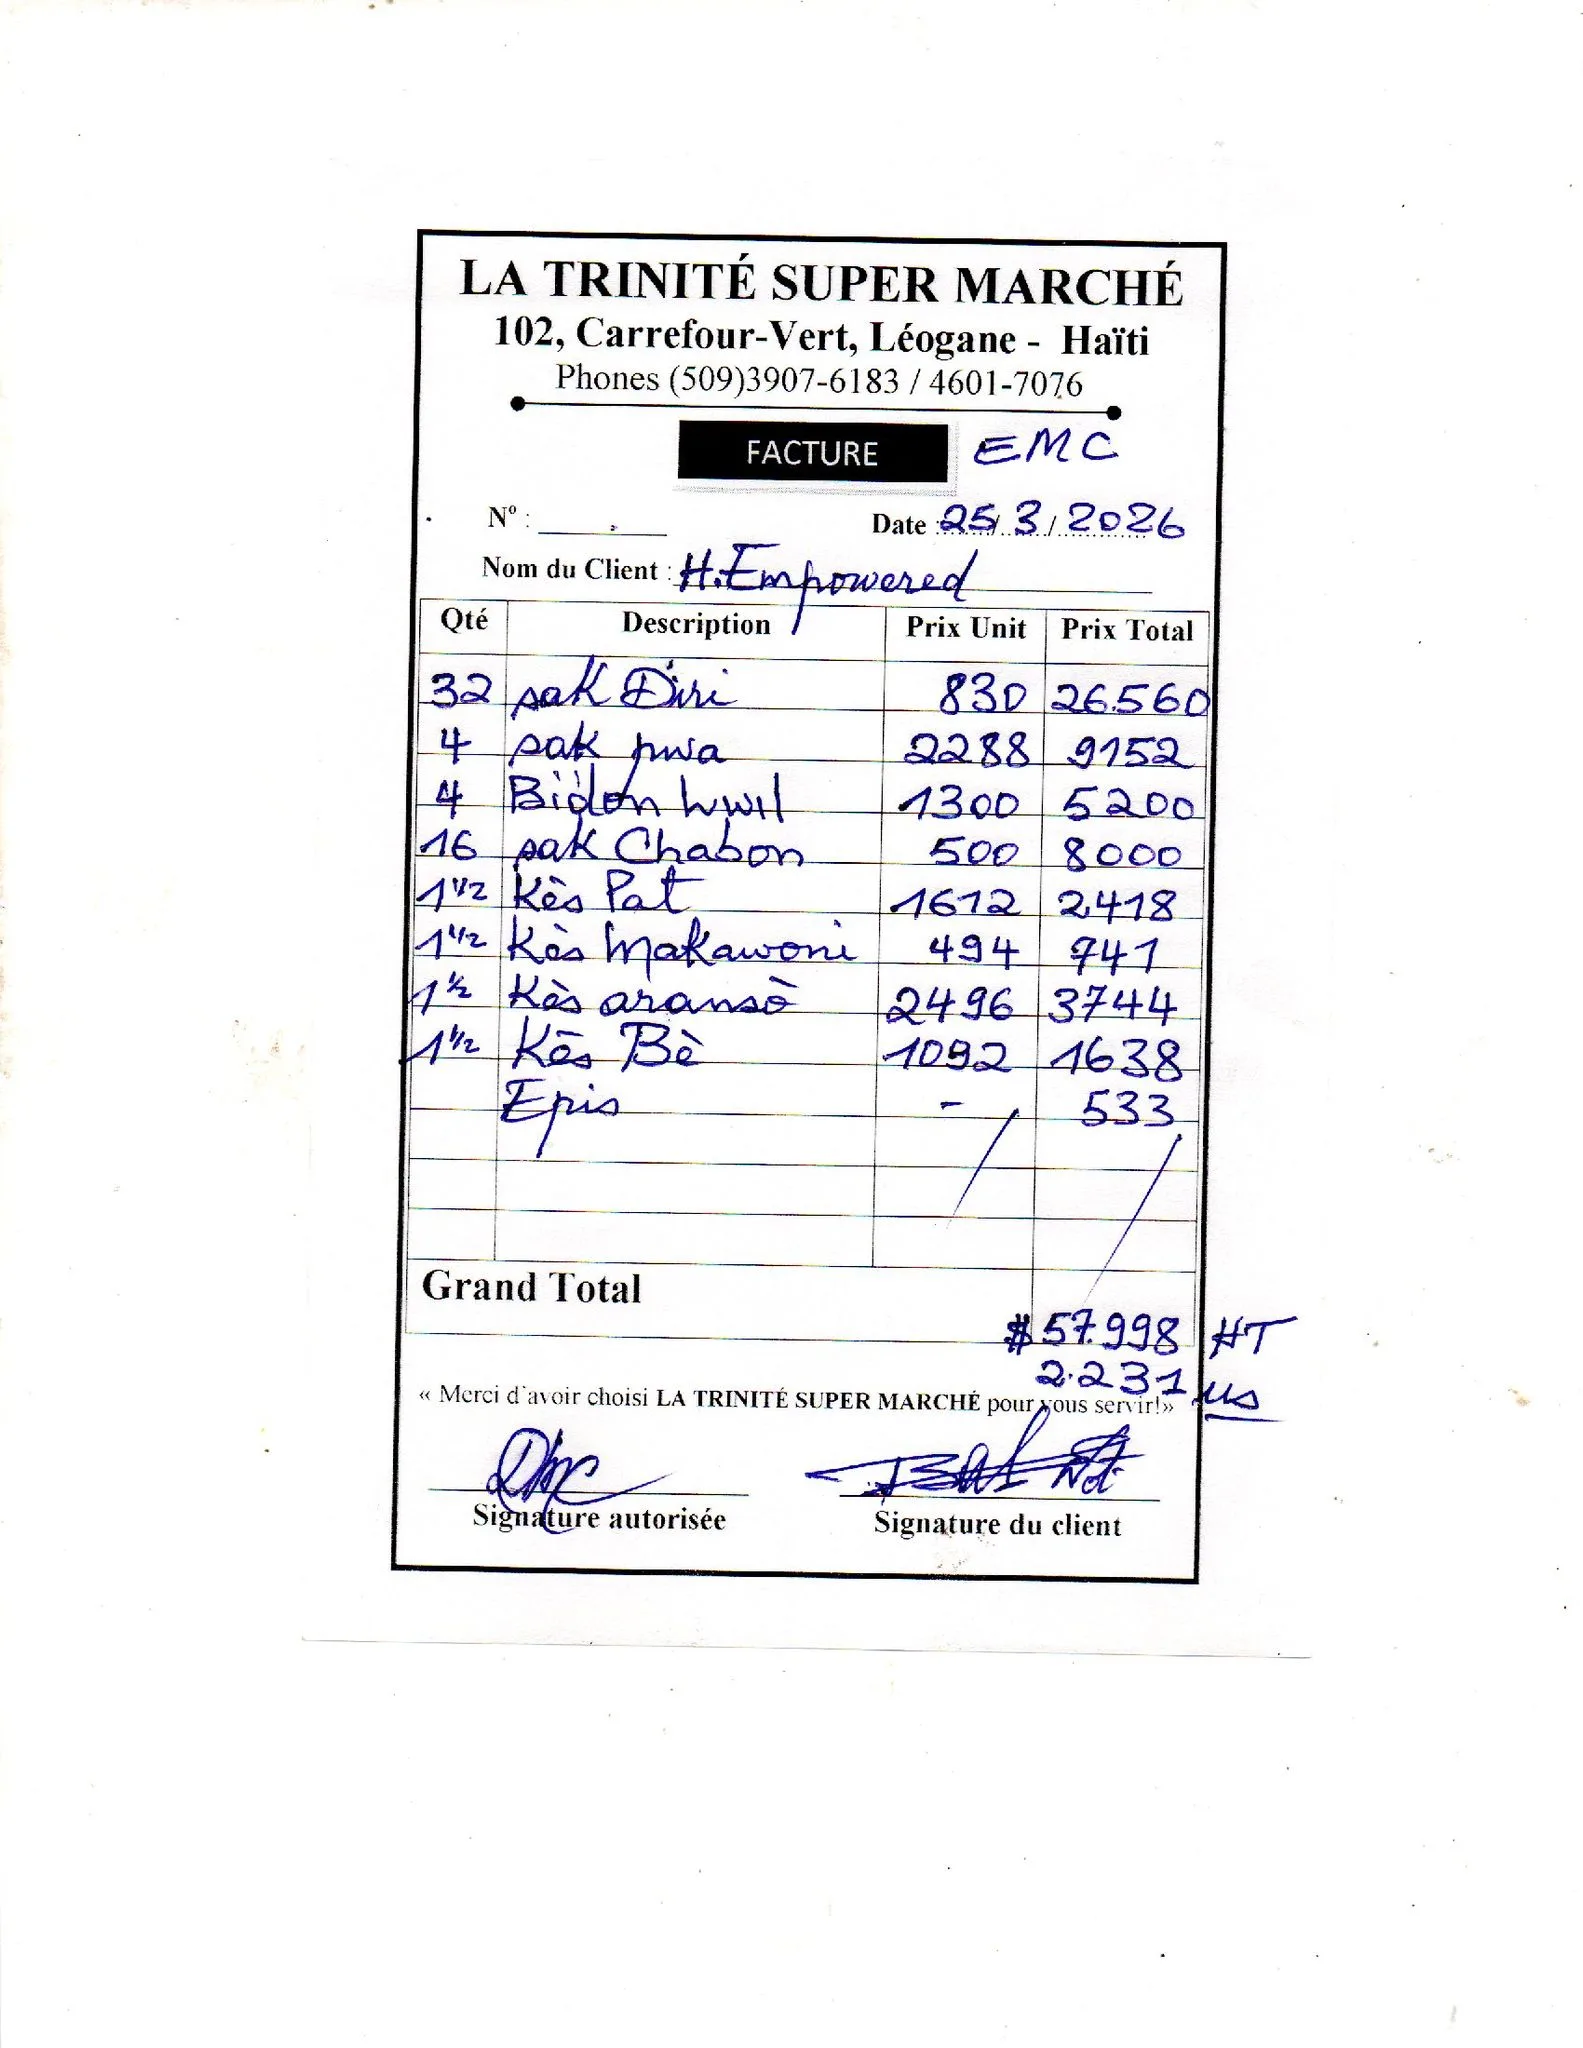 LA TRINITÉ SUPER MARCHÉ
102, Carrefour-Vert, Léogane - Haïti
Phones (509)3907-6183 / 4601-7076
FACTURE EMC
N° : Date : 25/3/2026
Nom du Client : H.Empowered
Qté Description Prix Unit Prix Total
32 sak Diri 830 26.560
4 sak pwa 2288 9152
4 Bidon lwil 1300 5200
16 sak Chabon 500 8000
1 1/2 Kès Pat 1612 2418
1 1/2 Kès Makawoni 494 741
1 1/2 Kès aransò 2496 3744
1 1/2 Kès Bè 1092 1638
Epis - 533
Grand Total
$ 57.998 HT
2.231 us
« Merci d'avoir choisi LA TRINITÉ SUPER MARCHÉ pour vous servir!»
Signature autorisée Signature du client